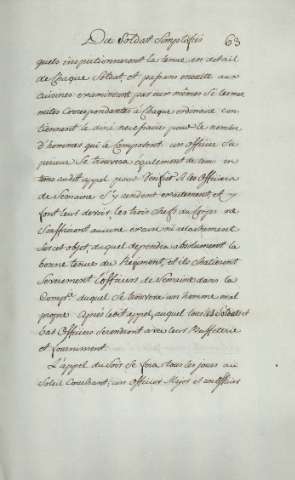 Du Soldat Simplifiés 63
quels inspectionneront la tenue en détail
de Chaque Soldat, et passeront ensuite aux
cuisines examineront par eux mêmes si les mar
mites Correspondantes à Chaque ordinaire con
tiennent le diné nécessaire pour le nombre
d'hommes qui le Composent un officier de
Semaine Se trouvera également de
tous audit appel pour les officiers
de Semaine s'y rendent exactement, et y
font leurs devoirs, les trois Chefs du Corps ne
Souffriront aucune erreur ni relachement
sur cet objet, duquel dependra absolument la
bonne tenue du Régiment, et ils chatieront
Severement l'officiers de Semaine dans la
Compe. duquel Se trouvera un homme mal
propre. Après ledit appel, auquel tous les Soldat et
bas Officiers Se rendront avec leur Buffleterie
et fourniment.
L'appel du Soir Se fera tous les jours au
Soleil Couchant; un officier Major et un officier